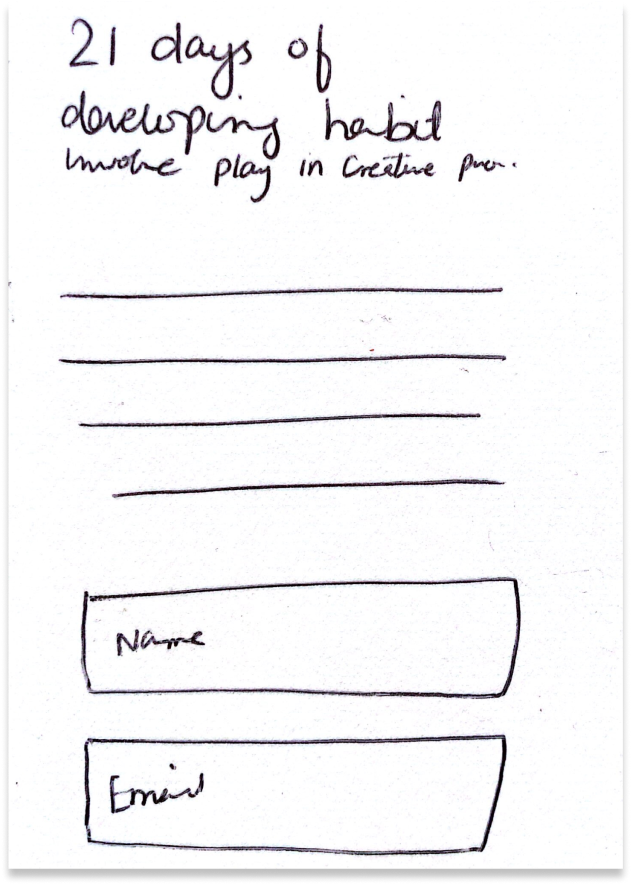 21 days of
developing habit
Involve play in Creative
Name
Email